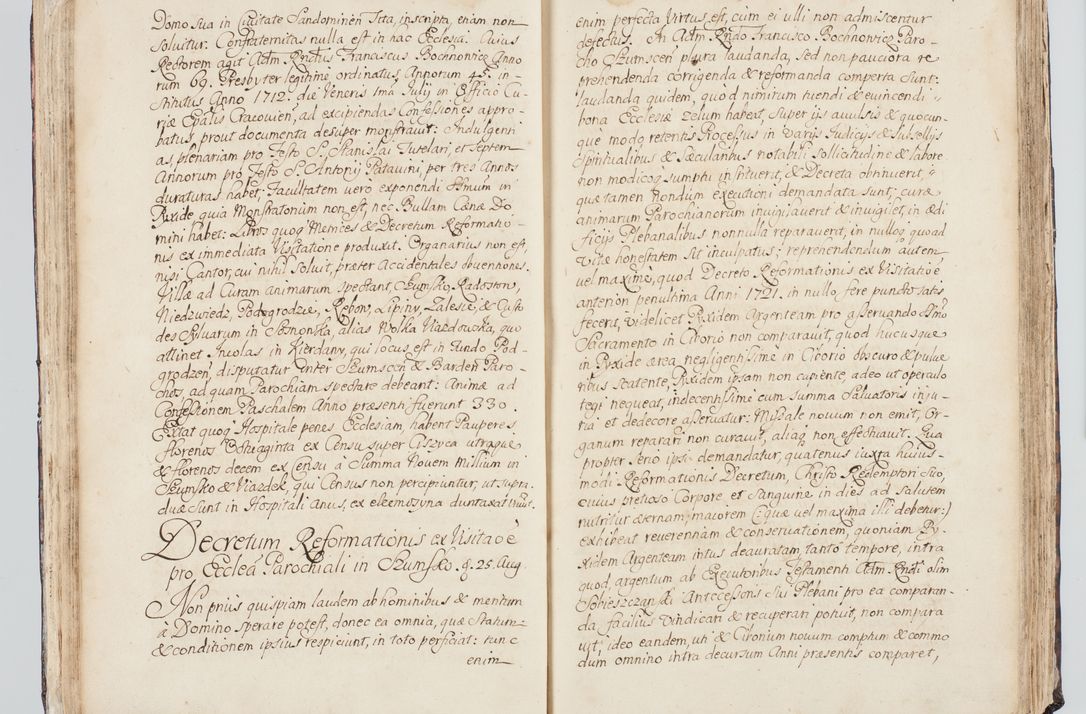 Domo sua in Civitate Sandominen Scta, inscripta, etiam non
solvitur. Confraternitas nulla est in hac Ecclesia. Cuius
Rectorem agit Adm Rndus Franciscus Bochnowicz Anno
rum 69. Presbyter legitime ordinatus, Annorum 45. in-
stitutus Anno 1712. die Veneris 1ma Julij in Officio Cu-
riæ Epalis Cracovien, ad excipiendas Confessiones appro-
batus, prout documenta desuper monstravit: Indulgenti
as plenariam pro Festo S. Stanislai Tutelari, et Septem
Annorum pro Festo S. Antonij Patavini, per tres Annos
duraturas habet, Facultatem vero exponendi Ssmum in
Pyxide, quia Monstratorium non est, nec Bullam Cænæ Do
mini habet: Libros quoq Metrices & Decretum Reformatio-
nis ex immediata Visitatione produxit. Organarius non est,
nisi Cantor, cui nihil solvit, præter Accidentales obventiones.
Villæ ad Curam animarum spectant, Szumsko, Radostow,
Niedzwiedz, Podgrodzie, Rebow, Lipiny, Zalesie, & Custo
des Sylvarum in Sosnonska, alias Wolka Wazdowska, quo
attinet Incolas in Kierdany, qui locus, est in Fundo Pod-
grodzen, disputatur inter Szumscen & Barden Paro-
chos, ad quam Parochiam spectare debeant: Animæ ad
Confessionem Paschalem Anno præsenti fuerunt 330.
Extat quoq Hospitale penes Ecclesiam, habent Pauperes,
florenos Octuaginta ex Censu super Gizyca utraque
& florenos decem ex Censu a Summa Novem Millium in
Szumsko & Wazdek, qui Census non percipiuntur, ut supra.
duæ sunt in Hospitali Anus, ex eleemosyna duntaxat vivut.
Decretum Reformationis ex Visitaoe
pro Ecclea Parochiali in Szumsko d. 25. Aug.
Non prius quispiam laudem ab hominibus & meritum
a Domino sperare potest, donec ea omnia, quæ statum
& conditionem ipsius respiciunt, in toto perficiat: tunc
enim
enim perfecta Virtus est, cum ei ulli non admiscentur
defectus. In Adm Rndo Francisco Bochnowicz Paro-
cho Szumscen plura laudanda, sed non pauciora re
prehendenda corrigenda & reformanda comperta sunt:
laudanda quidem, quod nimirum tuendi & evincendi
bona Ecclesiæ zelum habeat, super ijs avulsis & quocun-
que modo retentis Processus in varijs Judicijs & Subsellijs
Spiritualibus & Sæcularibus notabili sollicitudine & labore
non modicos sumptu instituerit, & Decreta obtinuerit,
quæ tamen nondum executioni demandata sunt; curæ
animarum Parochianorum invigilaverit & invigilet, in ædi
ficijs Plebanalibus nonnulla reparaverit, in nulloq quoad
vitæ honestatem sit inculpatus; reprehendendum autem
vel maxime, quod Decreto Reformationis ex Visitatioe
anteriori penultima Anni 1721. in nullo fere puncto satis
fecerit, videlicet Pyxidem Argenteam pro asservando Ssmo
Sacramento in Ciborio non comparavit, quod hucusque
in Pyxide ærea negligentissime in Ciborio obscuro & pulve
ribus scatente, Pyxidem ipsam non capiente, adeo ut operculo
tegi nequeat, indecentissime cum summa Salvatoris inju-
ria et dedecore asservatur: Missale novum non emit, Or-
ganum reparari non curavit, aliaq non effectuavit. Qua
propter serio ipsi demandatur, quatenus iuxta huius-
modi Reformationis Decretum, Christo Redemptori suo,
cuius pretioso Corpore et Sanguine in dies ad salutem
nutritur æternam, maiorem (: quæ vel maxima illi debetur:)
exhibeat reverentiam & conservationem, quoniam Py-
xidem Argenteam intus deauratam, tanto tempore, intra
quod, argentum ab Executoribus Testamenti Adm Rndi olim
Sobieszczanski Antecessoris sui Plebani pro ea comparan-
da, facilius vindicari & recuperari potuit, non compara
vit; ideo eandem, uti & Ciborium novum comptum & commo
dum omnino intra decursum Anni præsentis comparet,